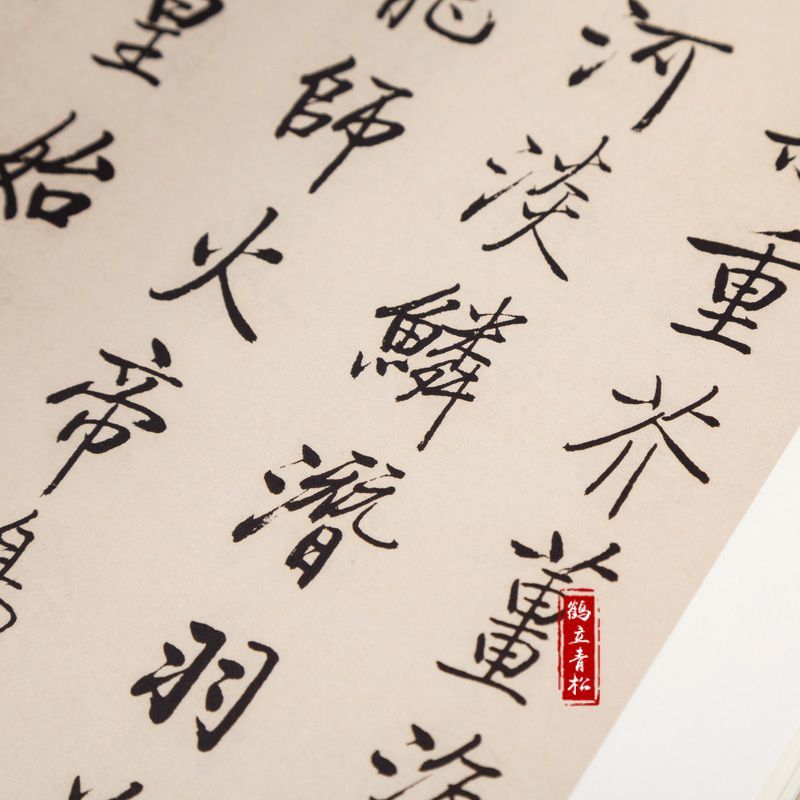 重芥薑海
河淡鱗潛羽
龍師火帝鳥
皇始
鹤立青松